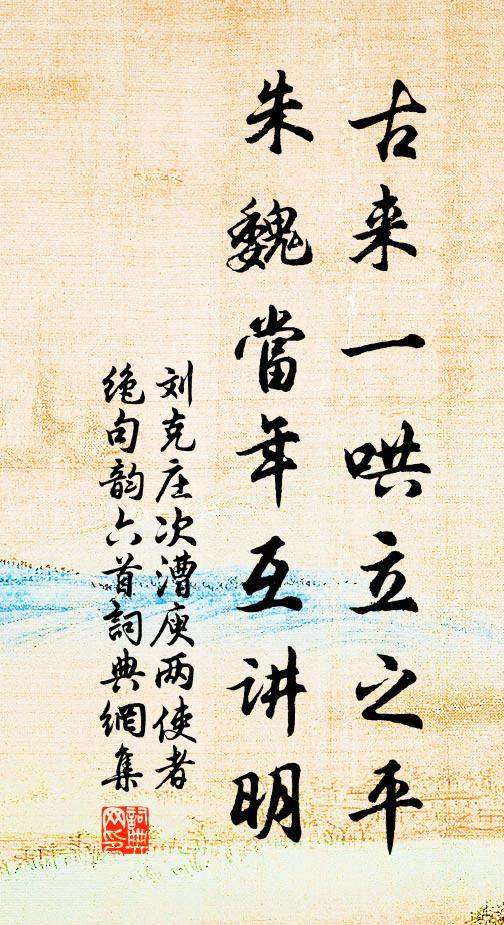 古来一哄立之平
朱魏當年互讲明
刘克庄次漕庾两使者
绝句韵六首詞典網集
詞典
网印